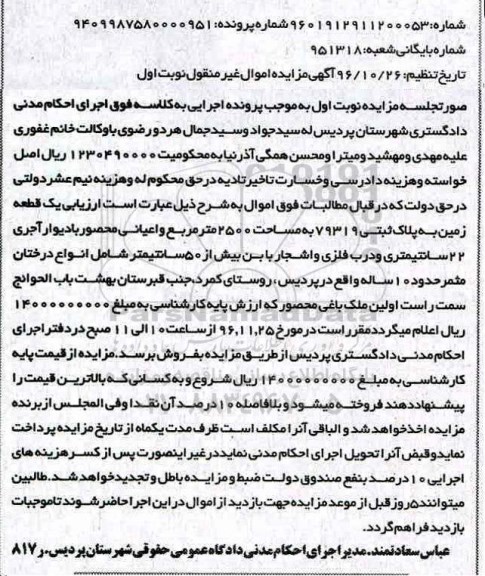 شماره: ۹۶۰۱۹۱۲۹۱۱۲۰۰۰۵۳ شماره پرونده: ۹۴۰۹۹۸۷۵۸۰۰۰۰۹۵۱
شماره بایگانی شعبه: ۹۵۱۳۱۸
تاریخ تنظیم: ۹۶/۱۰/۲۶ آگهی مزایده اموال غیر منقول نوبت اول
صورتجلسه مزایده نوبت اول به موجب پرونده اجرایی به کلاسه فوق اجرای احکام مدنی
دادگستری شهرستان پردیس له سیدجواد وسیدجمال هردو رضوی باوکالت خانم غفوری
علیه مهدی ومهشید ومیترا ومحسن همگی آذرنیا به محکومیت ۱۲۳۰۴۹۰۰۰۰ ریال اصل
خواسته وهزینه دادرسی وخسارت تاخیر تادیه درحق محکوم له وهزینه نیم عشر دولتی
درحق دولت که در قبال مطالبات فوق اموال به شرح ذیل عبارت است ارزیابی یک قطعه
زمین به پلاک ثبتی ۷۹۳۱۹ به مساحت ۲۵۰۰ متر مربع واعیانی محصور بادیوار آجری
۲۲ سانتیمتری ودرب فلزی واشجار با بن بیش از ۵۰ سانتیمتر شامل انواع درختان
مثمر حدود ۱۰ ساله واقع در پردیس، روستای کمرد، جنب قبرستان بهشت باب الحوائج
سمت راست اولین ملک باغی محصور که ارزش پایه کارشناسی به مبلغ ۱۴۰۰۰۰۰۰۰۰۰
ریال اعلام میگردد مقرر است در مورخ ۹۶,۱۱,۲۵ از ساعت ۱۰ الی ۱۱ صبح در دفتر اجرای
احکام مدنی دادگستری پردیس از طریق مزایده بفروش برسد. مزایده از قیمت پایه
کارشناسی به مبلغ ۱۴۰۰۰۰۰۰۰۰۰ ریال شروع و به کسانی که بالاترین قیمت را
پیشنهاد دهند فروخته میشود و بلافاصله ۱۰ درصد آن نقدا وفی المجلس از برنده
مزایده اخذ خواهد شد و الباقی آنرا مکلف است ظرف مدت یکماه از تاریخ مزایده پرداخت
نماید و قبض آنرا تحویل اجرای احکام مدنی نماید در غیر اینصورت پس از کسر هزینه های
اجرایی ۱۰ درصد بنفع صندوق دولت ضبط و مزایده باطل و تجدید خواهد شد. طالبین
میتوانند ۵ روز قبل از موعد مزایده جهت بازدید از اموال در این اجرا حاضر شوند تا موجبات
بازدید فراهم گردد.
عباس سعادتمند. مدیر اجرای احکام مدنی دادگاه عمومی حقوقی شهرستان پردیس. ر ۸۱۷